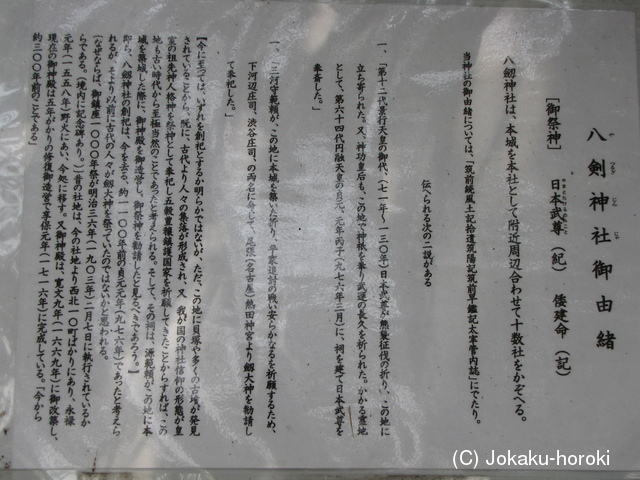 八剣神社御由緒
八劔神社は、本城を本社として附近周辺合わせて十数社をかぞへる。
[御祭神] 日本武尊(紀) 倭建命(記)
当神社の御由緒については、「筑前続風土記拾遺筑陽記筑前早鑑記太宰管内誌」にでたり。
伝へられる次の二説がある
一、「第十二代景行天皇の御代、(七一年〜一三〇年)日本武尊が熊襲征伐の折り、この地に
立ち寄られた。又、神功皇后も、この地で神祇を奉り武運の長久を祈られた。かかる霊地
として、第六十四代円融天皇の貞元、元年丙子(九七六年三月)に、祠を建て日本武尊を
奉斎した。」
一、「三河守範頼が、この地に本城を築いた折り、平家追討の戦い安らかなるを祈願するため、
下河辺庄司、渋谷庄司、の両名に命じて、尾張(名古屋)熱田神宮より劔大神を勧請し
て奉祀した。」
【今に至つては、いずれを創祀とするか明らかではないが、ただ、この地に貝塚や多くの古墳が発見
されていることから、既に、古代より人々の集落が形成され、又、我が国の神社信仰の形態が皇
室の祖先神人格神を祭神として奉祀し五穀豊穣鎮護国家を祈願してきたことからすれば、この
地も古い時代から至極当然のことであったと考えられる。そして、その祠は、源範頼がこの地に本
城を築城した際に、御神殿を御造営し、御祭神を勧請したと見るべきであろう。】
即ち、八劔神社の創祀は、今を去る、約一一〇〇年前の貞元元年(九七六年)であったと考えら
れるが、それより以前に古代の人々が劔大神を祭っていたのではないかと思われる。
(なぜならば、御鎮座一〇〇〇年祭が明治三六年(一九〇三年)二月七日に執行されているか
らである。(境内に記念碑あり。))昔の社地は、今の社地より西北一〇町ばかりにあり、永禄
元年(一五五八年)野火にあい、今処に移す。又御神殿は、寛文九年(一六六九年)に御改築し、
現在の御神殿は五年がかりの修復御造営で享保元年(一七一六年)に完成している。「今から
約三〇〇年前のことである」
(C) Jokaku-horoki